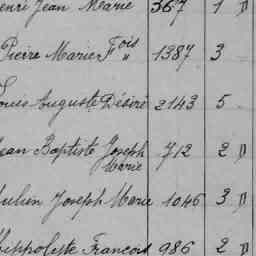 enri Jean Marie 367 1 "
Pierre Marie Fois " 1387 3
Louis Auguste Désiré 2143 5
Jean Baptiste Joseph Marie 712 2 "
Julien Joseph Marie 1046 3 "
Hippolyte François 986 2 "